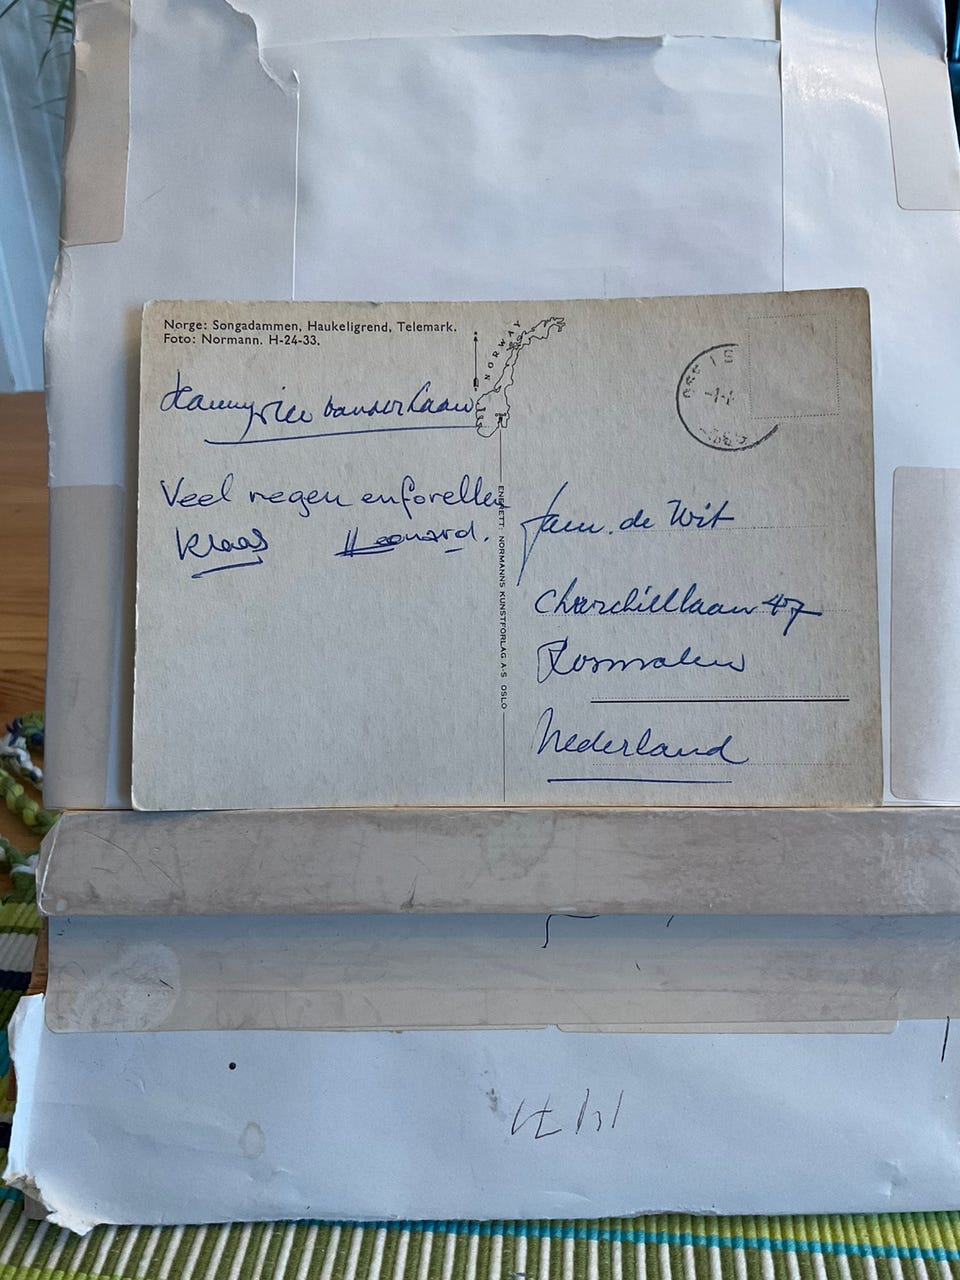 Norge: Songadammen, Haukeligrend, Telemark.
Foto: Normann. H-24-33.
NORWAY
van der Laan
Veel regen en forellen
Klaas Leonard.
ENERETT: NORMANNS KUNSTFORLAG A-S OSLO
Fam. de Wit
Churchilllaan 47
Rosmalen
Nederland